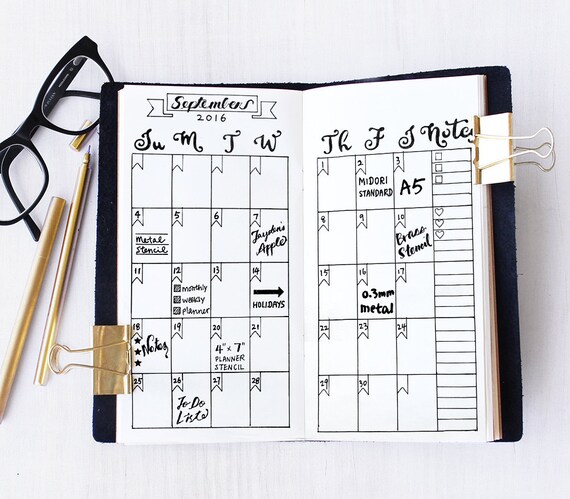 September
2016
Su M T W Th F S Notes
1 2 3
MIDORI
STANDARD
A5
4 5 6 7 8 9 10
Metal
Stencil
Apple
Brass
Stencil
11 12 13 14 15 16 17
monthly
weekly
planner
HOLIDAYS
0.3mm
metal
18 19 20 21 22 23 24
Notes
4" x 7"
PLANNER
STENCIL
25 26 27 28 29 30
To Do
Lists